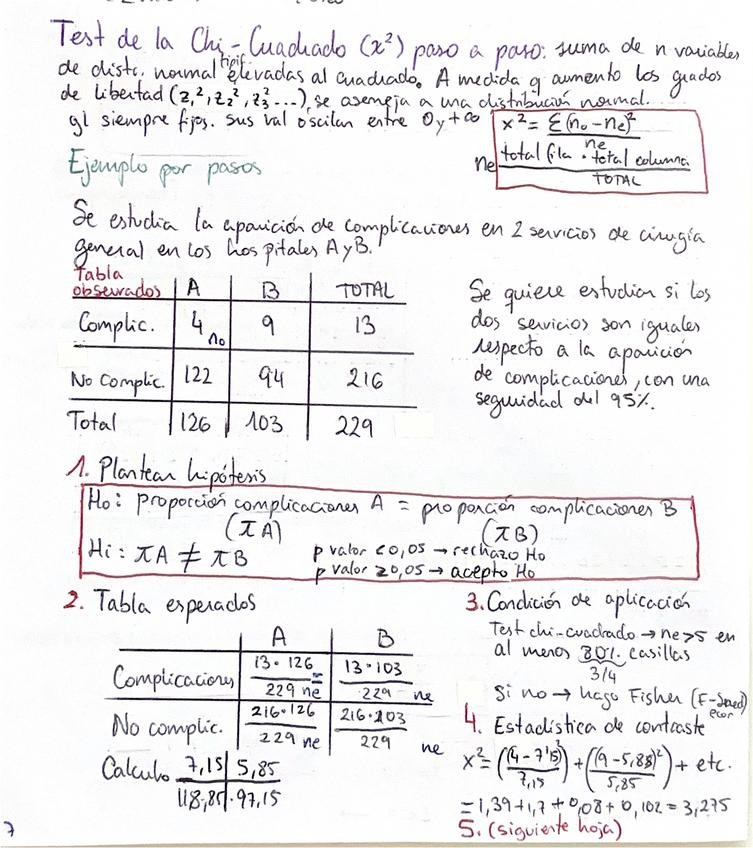 Test de la Chi-Cuadrado (x²) paso a paso: suma de n variables
de distr. normal tipif. elevadas al cuadrado. A medida q aumento los grados
de libertad (z₁², z₂², z₃²...), se asemeja a una distribución normal.
gl siempre fijos. sus val oscilan entre 0 y +∞
x² = Σ(no - ne)²
ne
ne total fila · total columna
TOTAL
Ejemplo por pasos
Se estudia la aparición de complicaciones en 2 servicios de cirugía
general en los hospitales A y B.
Tabla
observados A B TOTAL
Complic. 4 no 9 13
No Complic. 122 94 216
Total 126 103 229
Se quiere estudiar si los
dos servicios son iguales
respecto a la aparición
de complicaciones, con una
seguridad del 95%.
1. Plantear hipótesis
Ho: proporción complicaciones A = proporción complicaciones B
(πA) (πB)
Hi: πA ≠ πB
p valor <0,05 → rechazo Ho
p valor ≥0,05 → acepto Ho
2. Tabla esperados
A B
Complicaciones 13·126 = 13·103
229 ne 229 ne
No complic. 216·126 216·103
229 ne 229 ne
Calculo 7,15 5,85
118,85 97,15
3. Condición de aplicación
Test chi-cuadrado → ne>5 en
al menos 80% casillas
3/4
Si no → hago Fisher (F-Snedecor)
4. Estadística de contraste
x² = ((4-7'15)²/7,15) + ((9-5,85)²/5,85) + etc.
= 1,39+1,7+0,08+0,102 = 3,275
5. (siguiente hoja)
7